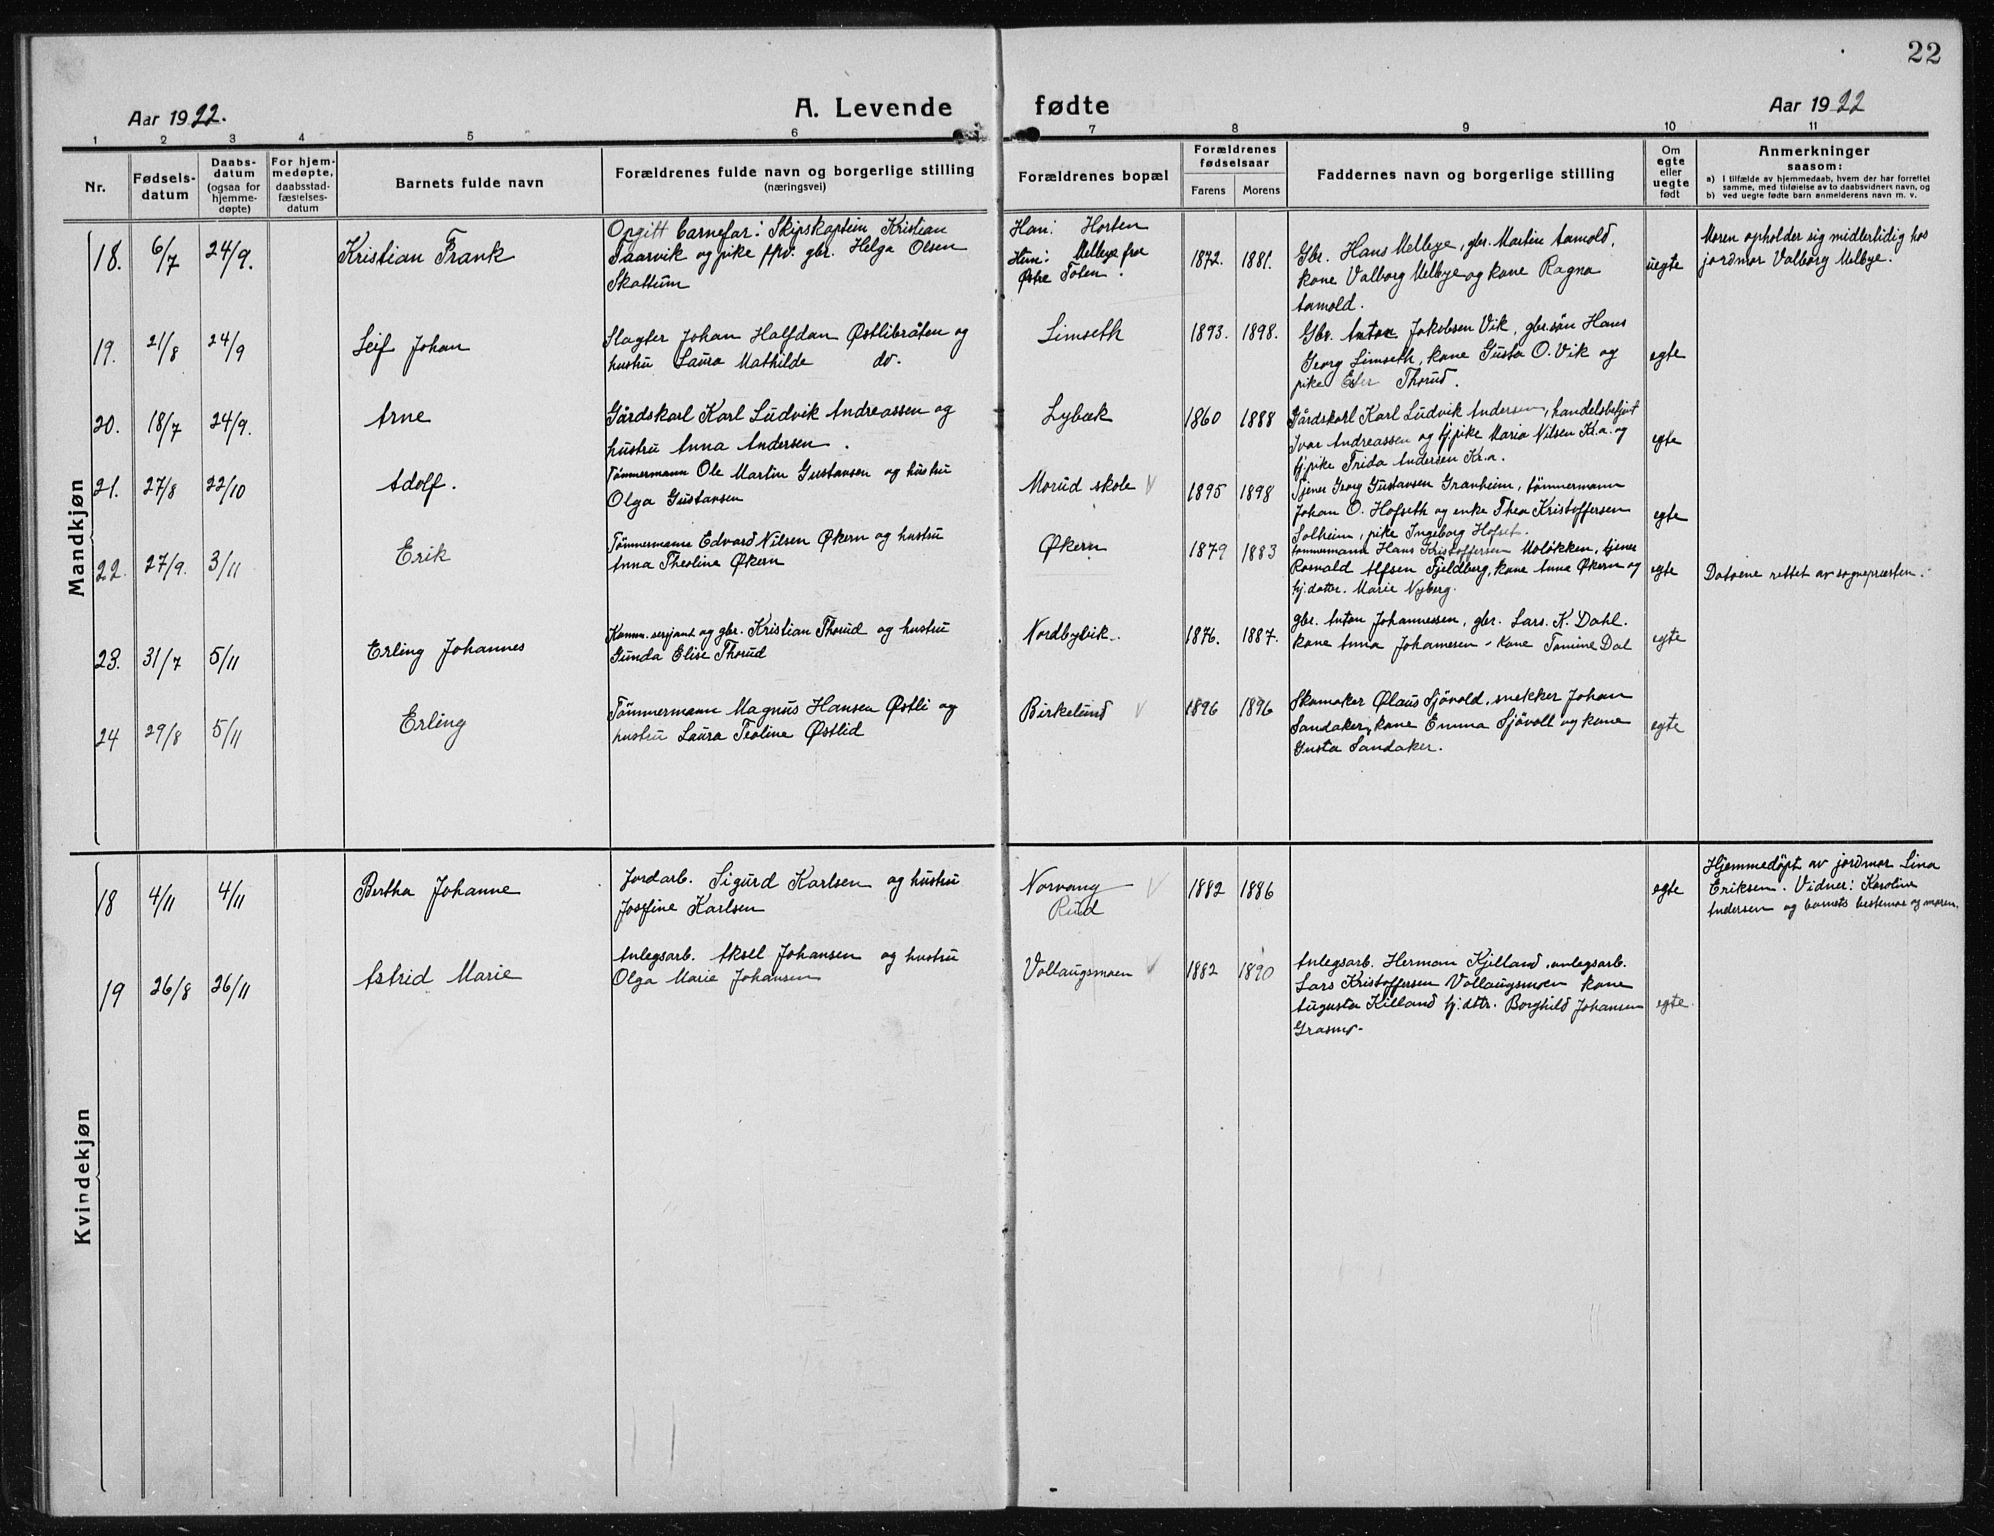 22
Aar 1922. A. Levende fødte Aar 1922
1 2 3 4 5 6 7 8 9 10 11
Nr.
Fødsels-
datum
Daabs-
datum
(ogsaa for
hjemme-
døpte)
For hjem-
medøpte,
daabsstad-
fæstelses-
datum
Barnets fulde navn
Forældrenes fulde navn og borgerlige stilling
(næringsvei)
Forældrenes bopæl
Forældrenes
fødselsaar
Farens Morens
Faddernes navn og borgerlige stilling
Om
egte
eller
uegte
født
Anmerkninger
saasom:
a) I tilfælde av hjemmedaab, hvem der har forrettet
samme, med tilføielse av to daabsvidners navn, og
b) ved uegte fødte barn anmelderens navn m. v.
Mandkjøn
18. 6/7 24/9. Kristian Frank
Opgitt barnefar: Skipskaptein Kristian
Taarvik og pike frv. gbr. Helga Olsen
Skattum
Han: Horten
Hun: Melbye fra
Østre Toten.
1872. 1881.
Gbr. Hans Melbye, gbr. Martin Aamold,
kone Valborg Melbye og kone Ragna
Aamold.
uegte
Moren opholder sig midlertidig hos
jordmor Valborg Melbye.
19. 21/8 24/9 Leif Johan
Slagter Johan Halfdan Østlibråten og
hustru Laura Mathilde do.
Limseth
1893. 1898.
Gbr. Anton Jakobsen Vik, gbr.søn Hans
Georg Limseth, kone Gusta O. Vik og
pike Ester Thorud.
egte
20. 18/7 24/9. Arne
Gårdskarl Karl Ludvik Andreassen og
hustru Anna Andersen.
Lybæk
1860 1888
Gårdskarl Karl Ludvik Andersen, handelsbetjent
Ivar Andreassen og tj.pike Maria Nilsen Kr.a. og
tj.pike Frida Andersen Kr.a.
egte
21. 27/8 22/10 Adolf.
Tømmermann Ole Martin Gustavsen og hustru
Olga Gustavsen
Morud skole V
1895 1898
Tjener Georg Gustavsen Granheim, tømmermann
Johan O. Hofseth og enke Thea Kristoffersen
Solheim, pike Ingeborg Hofset.
egte
22. 27/9. 3/11 Erik
Tømmermann Edvard Nilsen Økern og hustru
Anna Theoline Økern
Økern
1879 1883
tømmermann Hans Kristoffersen Moløkken, tjener
Rosvald Alfsen Fjeldberg, kone Anna Økern og
tj.datter. Marie Nyberg.
egte
Datoene rettet av sognepresten.
23. 31/7 5/11 Erling Johannes
Komm. serjant og gbr. Kristian Thorud og hustru
Gunda Elise Thorud
Nordbybvik.
1876. 1887.
gbr. Anton Johannessen, gbr. Lars. K. Dahl.
kone Anna Johannesen - kone Tomine Dal
egte
24 29/8 5/11 Erling
Tømmermann Magnus Hansen Østli og
hustru Laura Teoline Østlid
Birkelund V
1896 1896
Skomaker Ølaus Sjövold, snekker Johan
Sandaker, kone Emma Sjövoll og kone
Gusta Sandaker.
egte
Kvindekjøn
18 4/11 4/11 Bertha Johanne
Jordarb. Sigurd Karlsen og hustru
Josefine Karlsen
Norvang V
Rud
1882 1886
egte
Hjemmedöpt av jordmor Lina
Eriksen. Vidner: Karoline
Andersen og barnets bestemor og moren.
19 26/8 26/11 Astrid Marie
Anlegsarb. Aksel Johansen og hustru
Olga Marie Johansen
Vollaugsmoen V
1882 1890
Anlegsarb. Herman Kjilland, anlegsarb.
Lars Kristoffersen Vollaugsmoen kone
Augusta Killand tj.dttr. Borghild Johansen
Grasmo-
egte